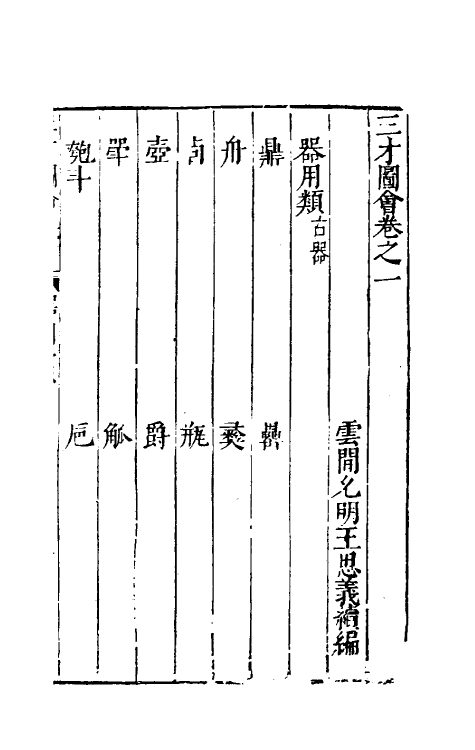 三才圖會卷之一
雲間允明王思義續編
器用類古器
鼎　彝
舟
卣　瓶
壺　爵
斝　觚
匏斗　巵